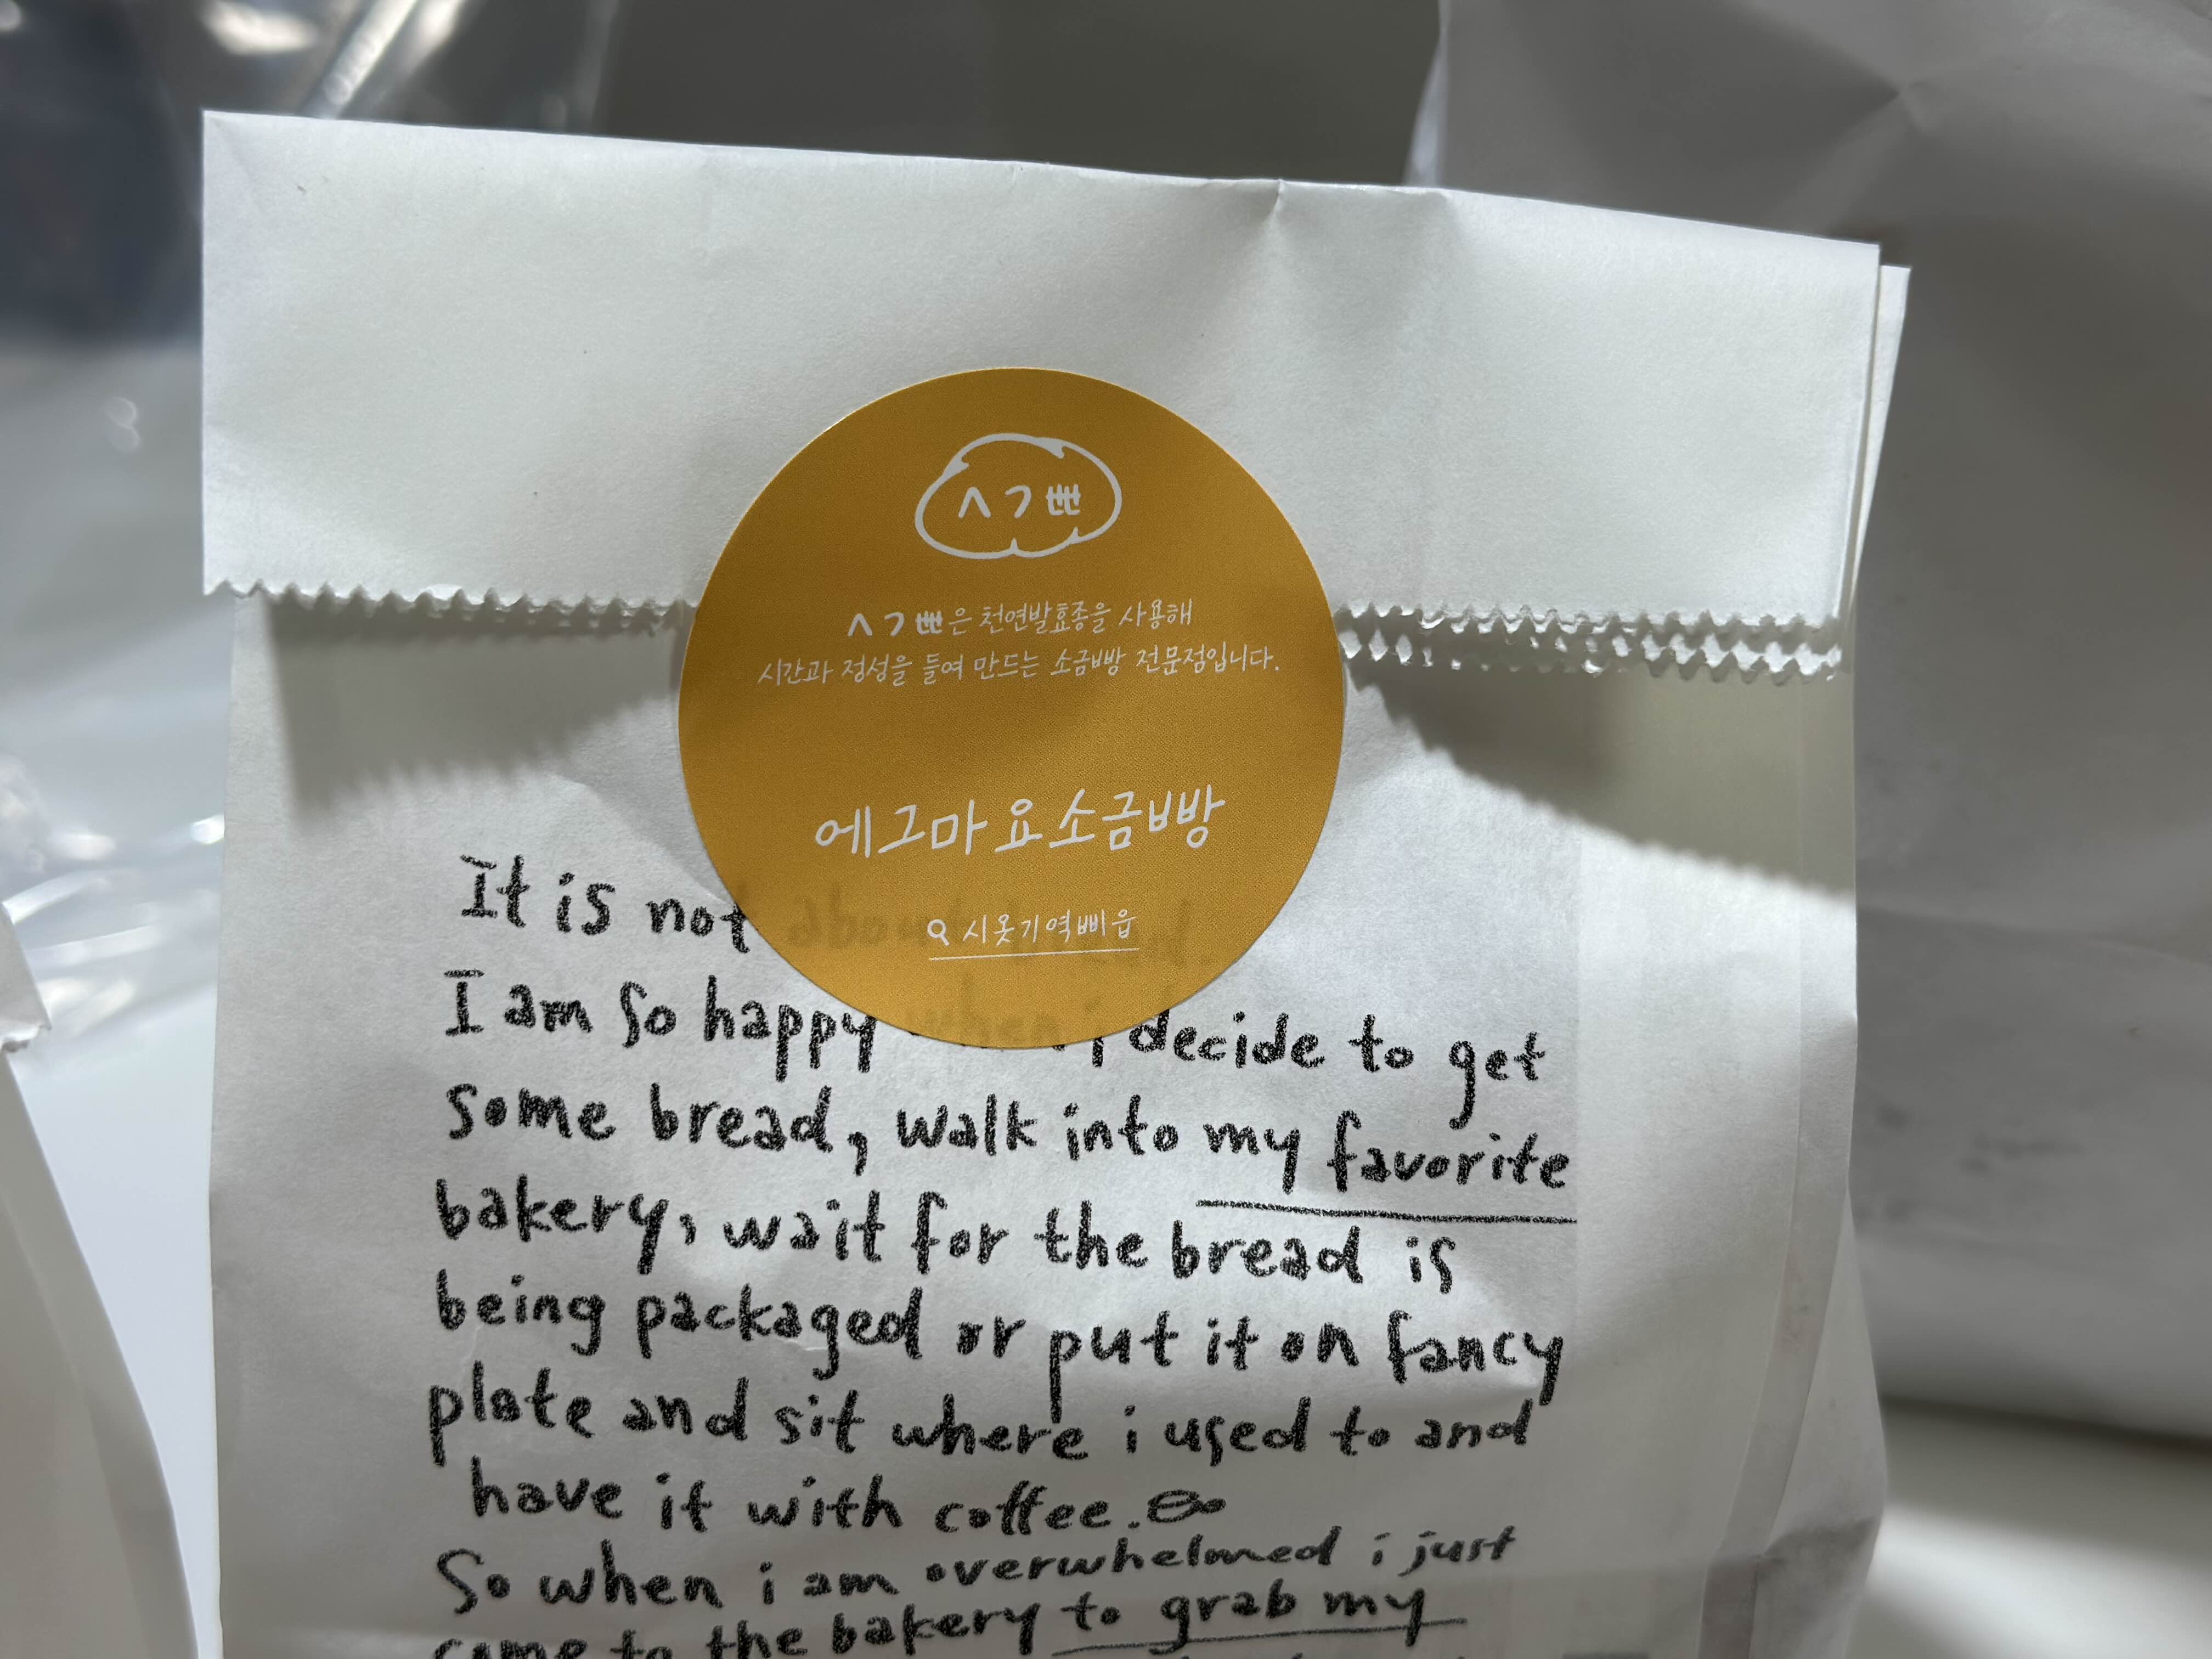 ㅅㄱㅃ
ㅅㄱㅃ은 천연발효종을 사용해
시간과 정성을 들여 만드는 소금빵 전문점입니다.
에그마요소금빵
시옷기역삐읍
It is not about
I am so happy when i decide to get
some bread, walk into my favorite
bakery, wait for the bread is
being packaged or put it on fancy
plate and sit where i used to and
have it with coffee.
So when i am overwhelmed i just
come to the bakery to grab my